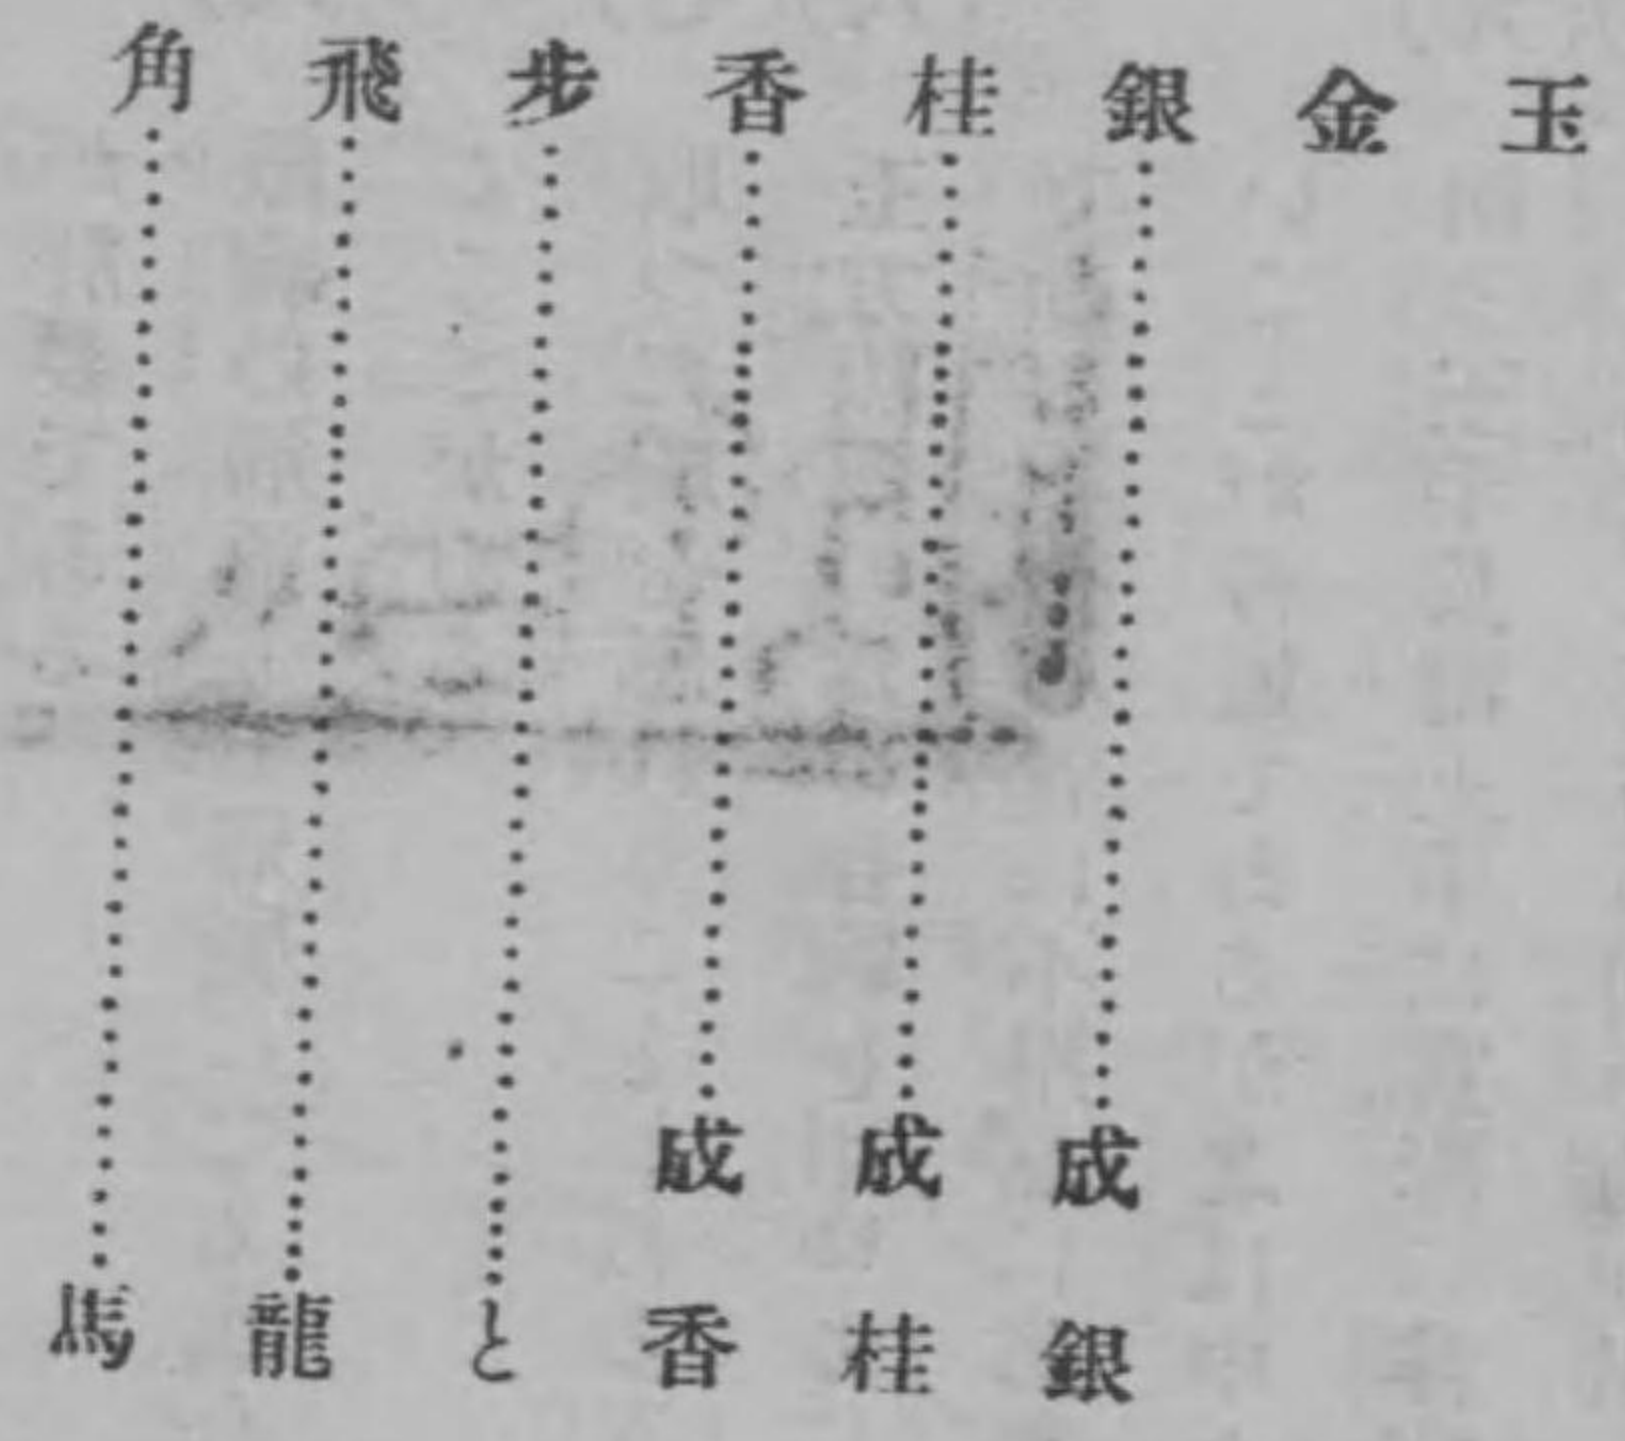 玉
金
銀……成銀
桂……成桂
香……成香
步……と
飛……龍
角……馬